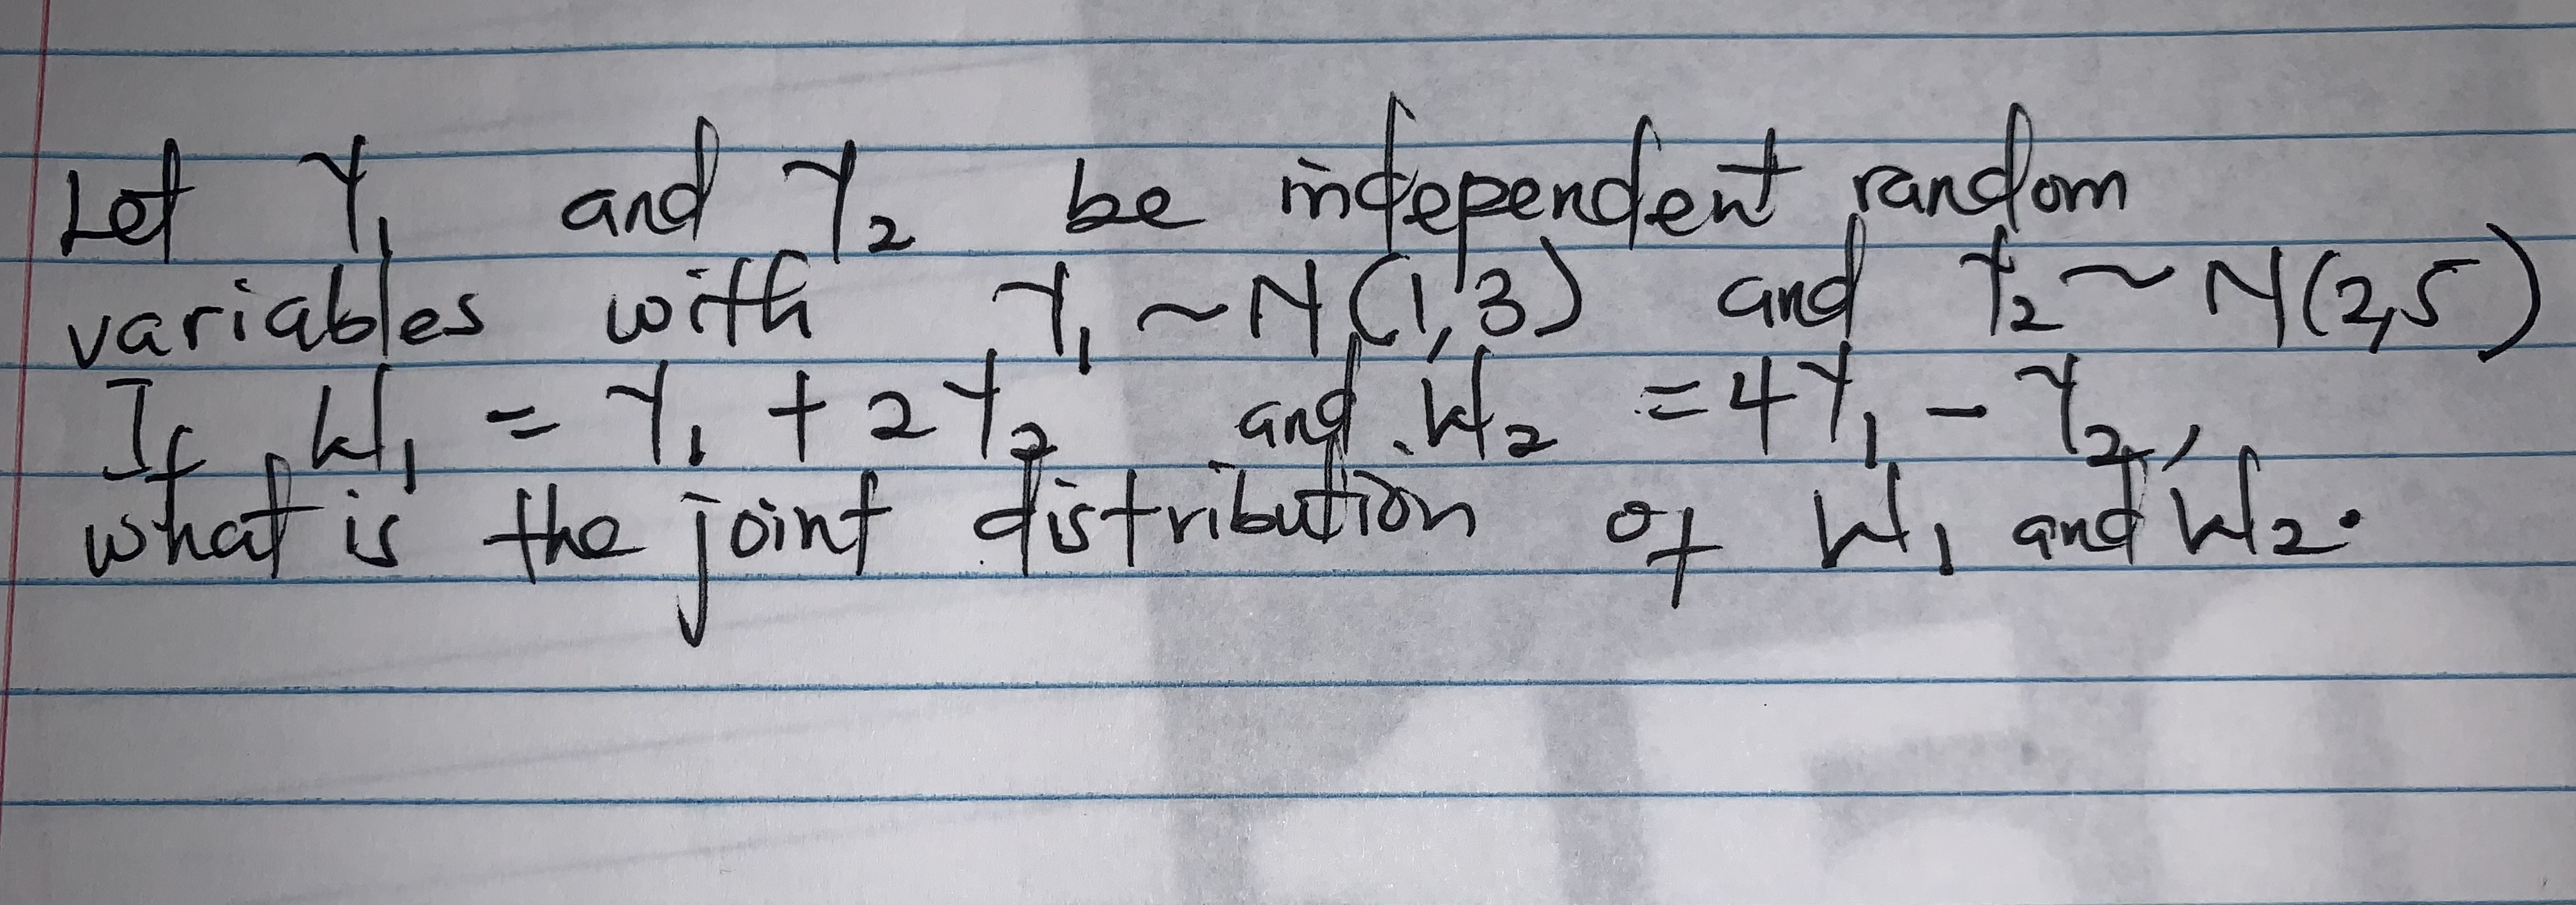 Let Y₁ and Y₂ be independent random
variables with Y₁ ~ N(1,3) and Y₂ ~ N(2,5)
If W₁ = Y₁ + 2Y₂ and W₂ = 4Y₁ - Y₂,
what is the joint distribution of W₁ and W₂.